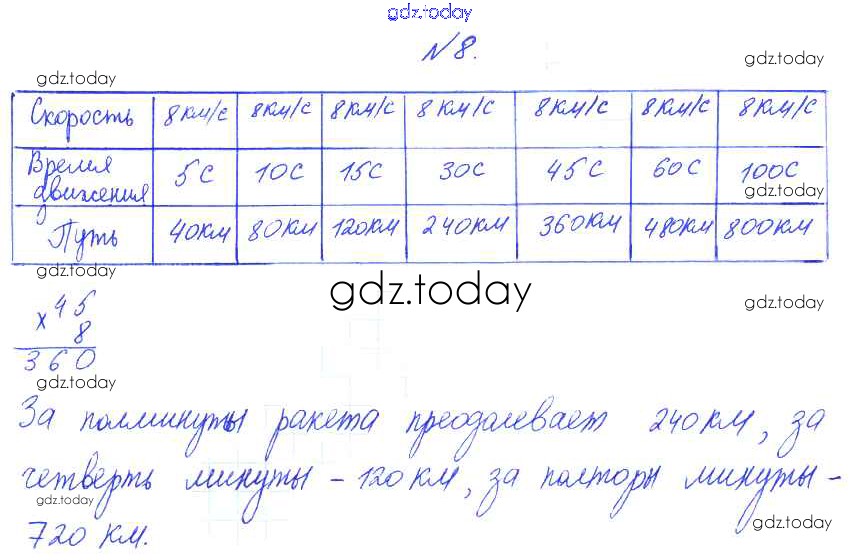 gdz.today
№8.
gdz.today
gdz.today
Скорость 8км/с 8км/с 8км/с 8км/с 8км/с 8км/с 8км/с
Время движения 5с 10с 15с 30с 45с 60с 100с
gdz.today
Путь 40км 80км 120км 240км 360км 480км 800км
gdz.today
gdz.today
gdz.today
х 45
8
360
gdz.today
За полминуты ракета преодалевает 240км, за
четверть минуты – 120км, за полторы минуты –
gdz.today
720 км.
gdz.today